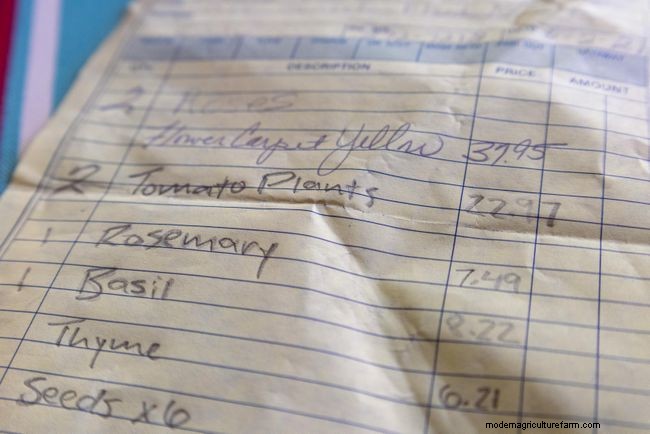 DESCRIPTION PRICE AMOUNT
2 Roses
Flower Carpet Yellow 37.95
2 Tomato Plants 22.97
1 Rosemary 7.49
1 Basil 8.22
Thyme 6.21
Seeds x6
modernagriculturefarm.com